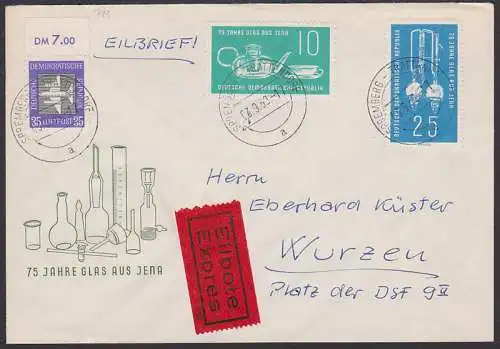 DM 7.00
EILBRIEF!
75 JAHRE GLAS AUS JENA 10
DEUTSCHE DEMOKRATISCHE REPUBLIK
DEUTSCHE DEMOKRATISCHE REPUBLIK
75 JAHRE GLAS AUS JENA
25
DEUTSCHE
DEMOKRATISCHE
REPUBLIK
35 LUFTPOST 35
SPREMBERG
a
SPREMBERG
a
SPREMBERG
Herrn
Eberhard Küster
Wurzen
Platz der DSF 9II
75 JAHRE GLAS AUS JENA
Eilbote
Exprès